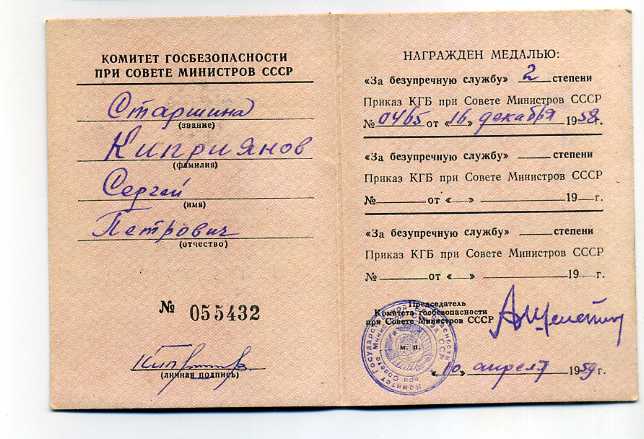 КОМИТЕТ ГОСБЕЗОПАСНОСТИ
ПРИ СОВЕТЕ МИНИСТРОВ СССР
Старшина
(звание)
Киприянов
(фамилия)
Сергей
(имя)
Петрович
(отчество)
№ 055432
(личная подпись)
НАГРАЖДЕН МЕДАЛЬЮ:
«За безупречную службу» 2 степени
Приказ КГБ при Совете Министров СССР
№ 0465 от «16» декабря 1958г.
«За безупречную службу» степени
Приказ КГБ при Совете Министров СССР
№ от « » 19 г.
«За безупречную службу» степени
Приказ КГБ при Совете Министров СССР
№ от « » 19 г.
Председатель
Комитета госбезопасности
при Совете Министров СССР
м. п.
«10» апреля 1959г.